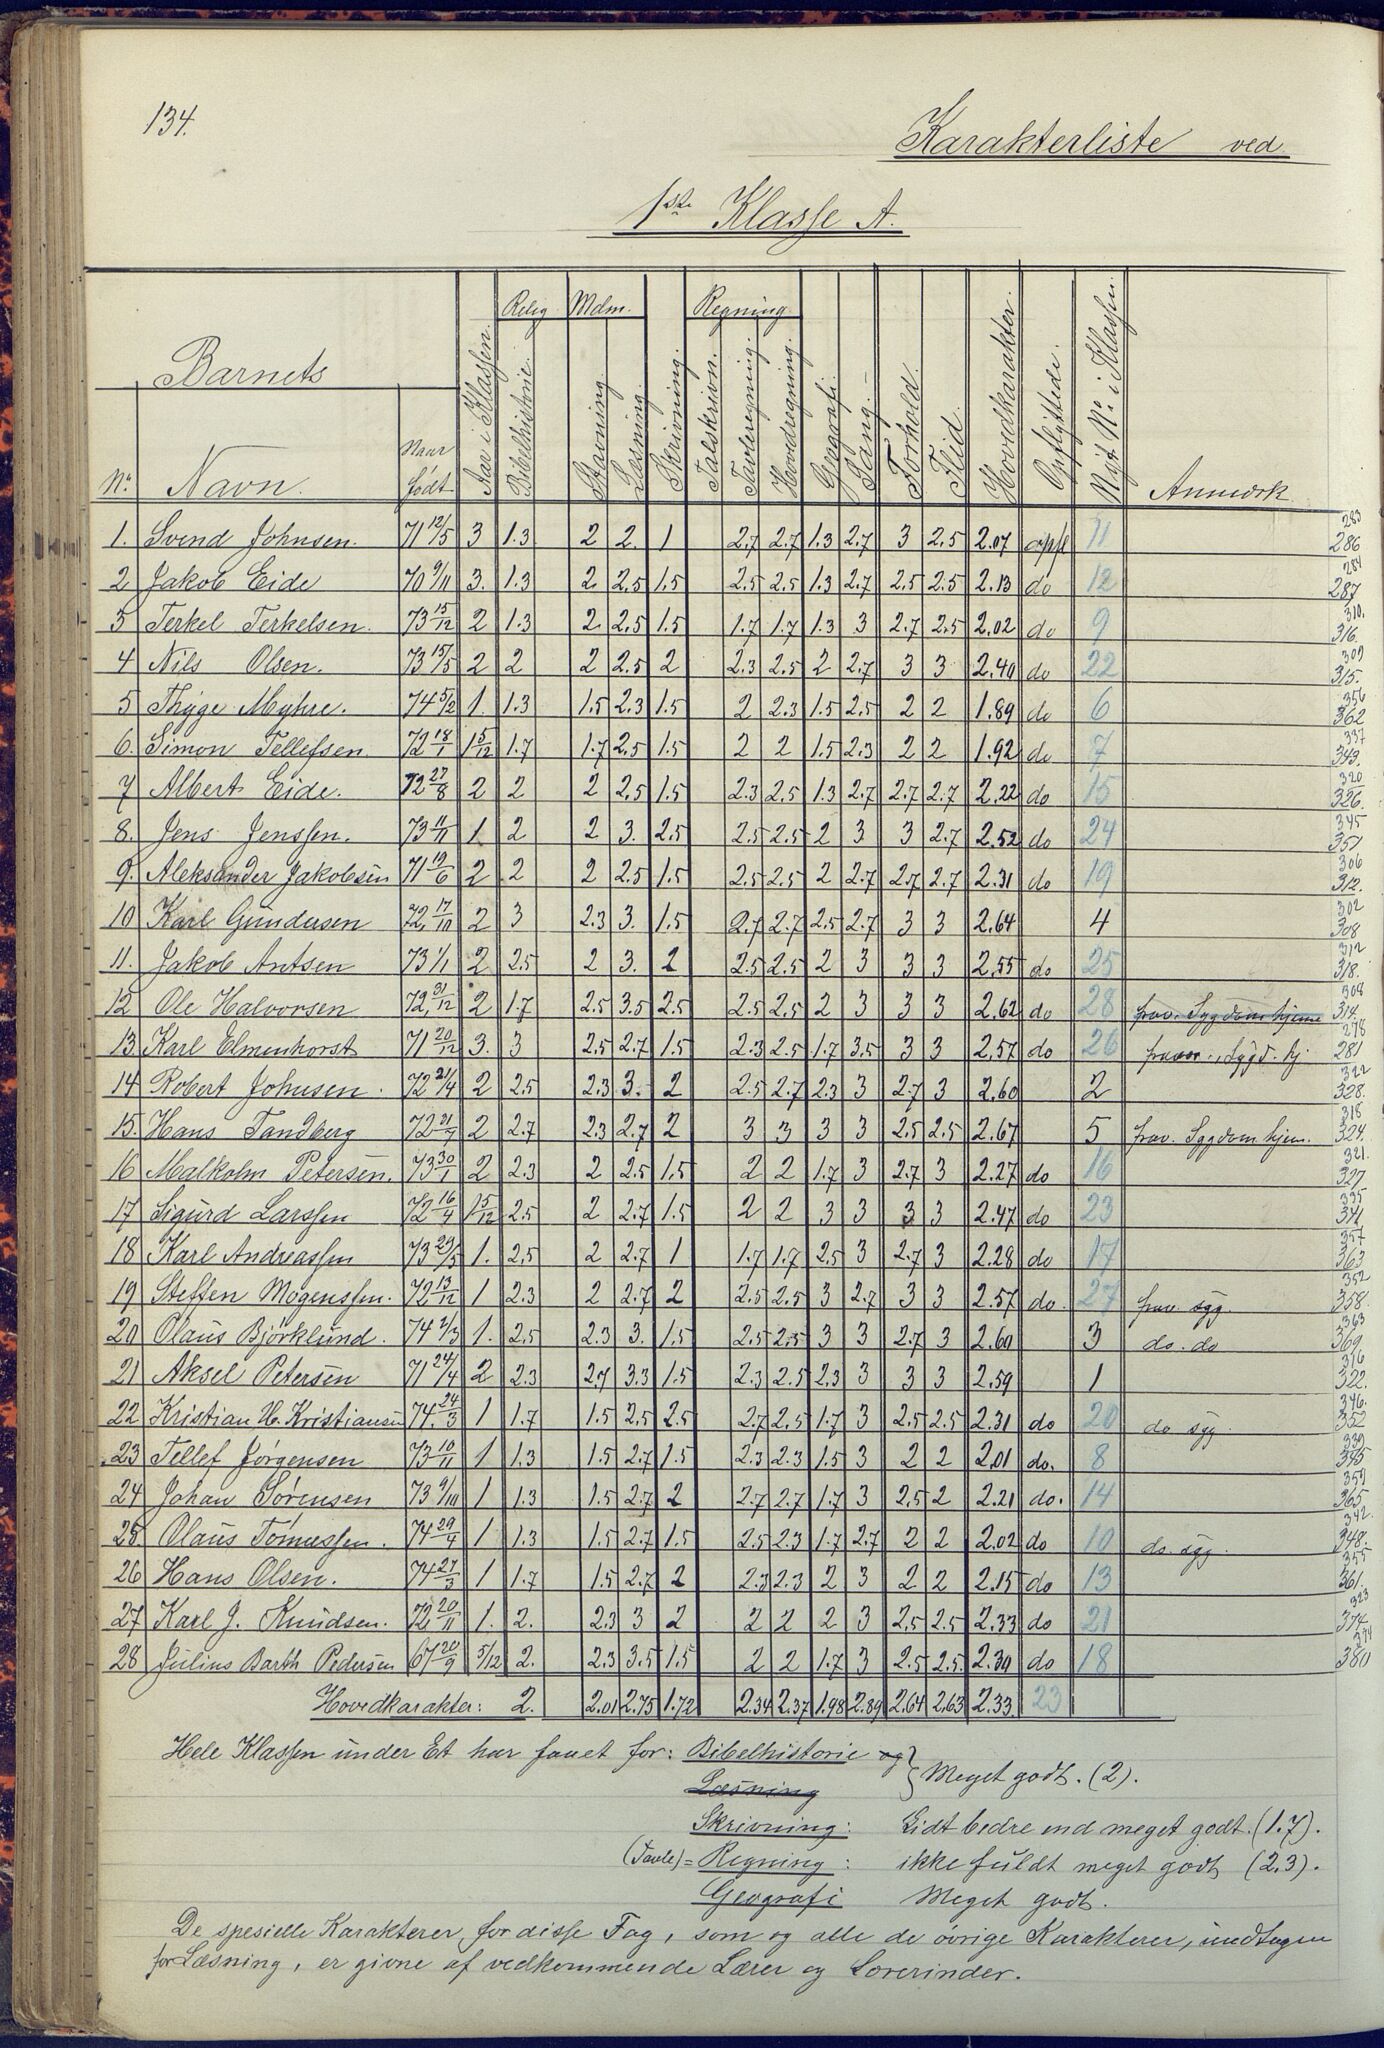 134.
Karakterliste ved
1ste Klasse A.
Barnets
No. Navn. Naar født Aar i Klassen. Relig Bibelhistorie. Mdm. Stavning. Læsning. Skrivning. Regning Talskrivn. Tavleregning. Hovedregning. Geografi. Sang. Forhold. Flid. Hovedkarakter. Opflyttede. Nyt No. i Klassen. Anmærk
1. Svend Johnsen. 71 12/5 3 1.3 2 2. 1 2.7 2.7 1.3 2.7 3 2.5 2.07 opfl 11 283 286
2 Jakob Eide 70 9/11 3. 1.3 2. 2.5 1.5 2.5 2.5 1.3 2.7 2.5 2.5 2.13 do 12 284 287
3 Terkel Terkelsen. 73 15/12 2 1.3 2. 2.5 1.5 1.7 1.7 1.3 3 2.7 2.5 2.02 do 9 310. 316.
4 Nils Olsen. 73 15/5 2 2 2 2.5 2 2.3 2.5 2 2.7 3 3 2.40 do 22 309 315.
5 Thyge Myhre. 74 5/2 1. 1.3 1.5 2.3 1.5 2 2.3 1.5 2.5 2 2 1.89 do 6 356 362
6. Simon Tellefsen 72 18/1 1 5/12 1.7 1.7 2.5 1.5 2 2 1.5 2.3 2 2 1.92 do 7 337 343.
7 Albert Eide. 72 27/8 2 2 2 2.5 1.5 2.3 2.5 1.3 2.7 2.7 2.7 2.22 do 15 320 326.
8. Jens Jenssen. 73 11/11 1 2 2 3. 2.5 2.5 2.5 2 3 3 2.7 2.52 do 24 345 351
9. Aleksander Jakobsen 71 19/6 2 2 2 2.5 1.5 2.5 2.5 2 2.7 2.7 2.7 2.31 do 19 306 312.
10 Karl Gundersen 72. 17/10 2 3 2.3 3. 1.5 2.7 2.7 2.5 2.7 3 3 2.64 4 302 308
11. Jakob Antsen 73 1/1 2 2.5 2 3. 2 2.5 2.5 2 3 3 3 2.55 do 25 312 318.
12 Ole Halvorsen 72. 31/12 2 1.7 2.5 3.5 2.5 2.5 2.5 2 3 3 3 2.62 do 28 frav. Sygdom hjeme 308 314.
13. Karl Elmenhorst 71 20/12 3. 3 2.5 2.7 1.5 2.3 2.5 1.7 3.5 3 3 2.57 do 26 278 281
14 Robert Johnsen. 72 21/4 2 2.5 2.3 3. 2 2.5 2.7 2.3 3 2.7 3 2.60 2 322 328.
15. Hans Tandberg 72 2 2.7 2.3 2.7 2 3 3 3 3 2.5 2.5 2.67 5 frav. Sygdom hjem. 318 324.
16 Malkolm Petersen. 73 30/1 2 2.3 2 2.5 1.5 2 2 1.7 3 2.7 3 2.27 do 16 321. 327.
17. Sigurd Larssen 72 16/4 1 5/12 2.5 2 2.7 1.5 2 2 3 3 3 3 2.47 do 23 335 341
18 Karl Andreassen 73 29/5 1. 2.5 2 2.7 1 1.7 1.7 2.5 3 2.7 3 2.28 do 17 357 363
19 Steffen Mogenssen. 72 13/12 1 2.3 2 2.7 2 2.5 2.5 3 2.7 3 3 2.57 do. 27 frav. syg. 352 358.
20 Olaus Bjørklund. 74 2/3 1. 2.5 2.3 3. 1.5 2.5 2.5 3 3 2.7 3 2.60 3 do. do 363 369.
21 Aksel Petersen 71 24/4 2 2.3 2.7 3.3 1.5 2.3 2.5 2.3 3 3 3 2.59 1 316 322.
22 Kristian H. Kristiansen 74. 24/3 1 1.7 1.5 2.5 2.5 2.7 2.5 1.7 3 2.5 2.5 2.31 do 20 do syg. 346. 352
23 Tellef Jørgensen 73 10/11 1 1.3 1.5 2.7 1.5 2.3 2.3 1.5 3 2 2 2.01 do. 8 339 345
24 Johan Sørensen 73 9/10 1 1.3 1.5 2.7 2 2.7 2.7 1.7 3 2.5 2 2.21 do. 14 359 365.
25. Olaus Tomassen. 74 29/4 1 1.3 1.5 2.7 1.5 2.5 2.3 1.7 2.7 2 2 2.02 do 10 do. syg. 342. 348.
26 Hans Olsen. 74 27/3 1 1.7 1.5 2.7 2 2.3 2.3 2 3 2 2 2.15 do 13 355 361.
27 Karl J. Knudsen. 72 20/11 1. 2. 2.3 3 2 2 2 2 3 2.5 2.5 2.33 do 21 323 374
28 Julius Barth Pedersen 67 20/9 5/12 2. 2.3 3.5 1.5 2 2 1.7 3 2.5 2.5. 2.30 do 18 380
Hovedkarakter: 2. 2.01 2.75 1.72 2.34 2.37 1.98 2.89 2.64 2.63 2.33. 23
Hele Klassen under Et har faaet for: Bibelhistorie og } Meget godt. (2).
Læsning
Skrivning: Lidt bedre end meget godt. (1.7).
(Tavle)= Regning: ikke fuldt meget godt (2.3).
Geografi Meget godt.
De spesielle Karakterer for disse Fag, som og alle de øvrige Karakterer, undtagen
for Læsning, er givne af vedkommende Lærer og Lærerinder.